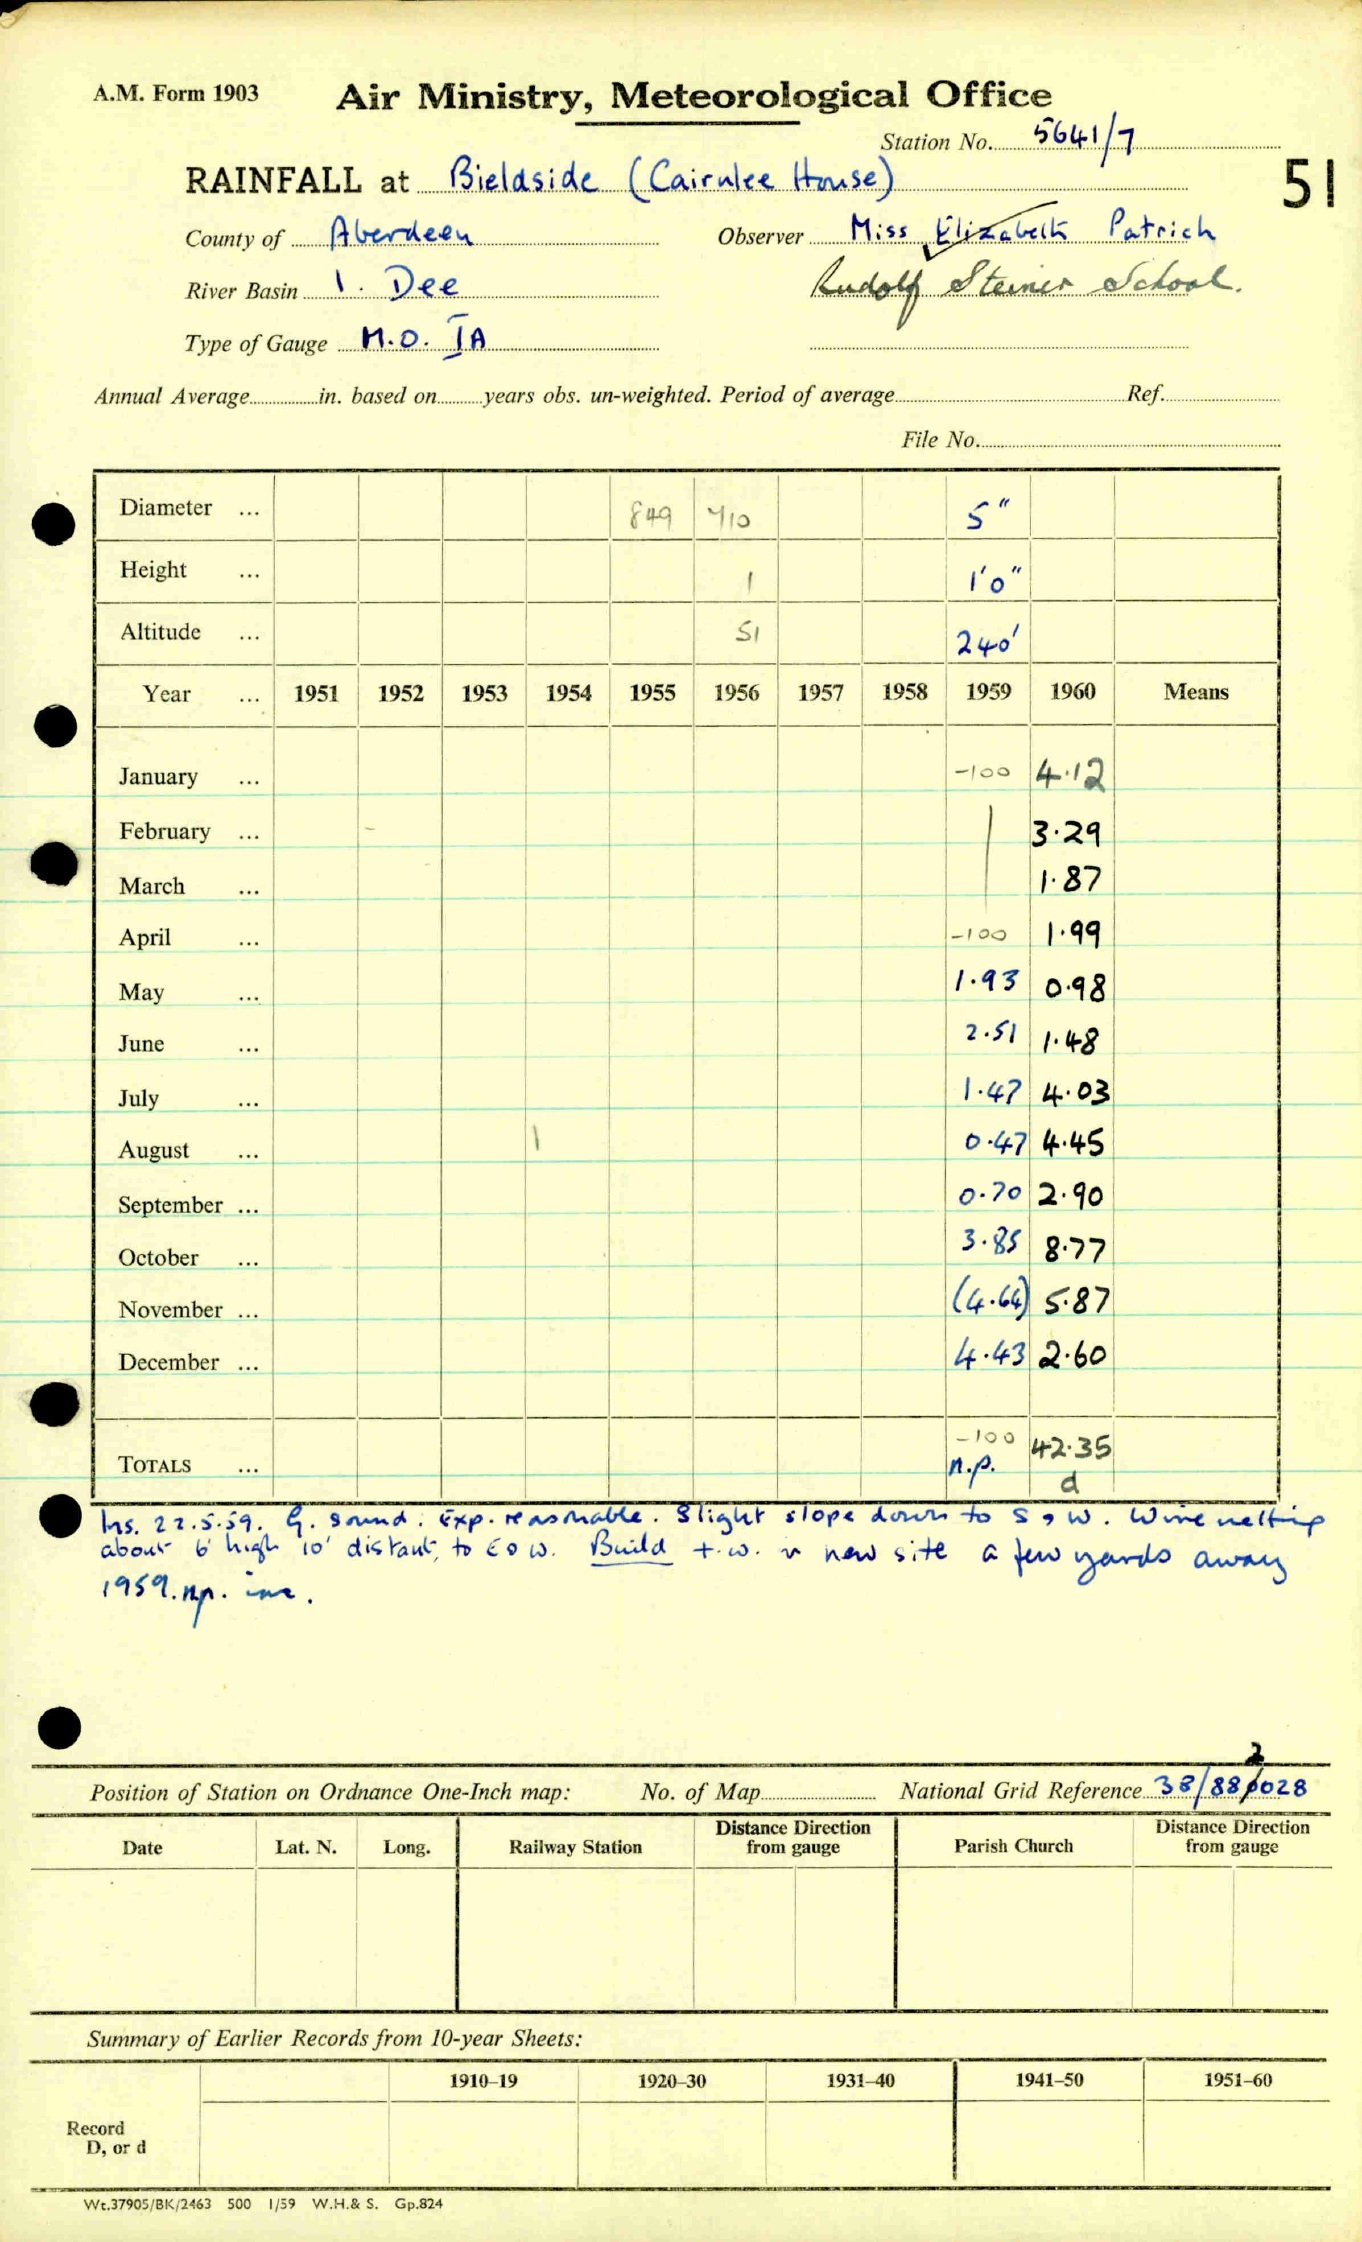 A.M. Form 1903 Air Ministry, Meteorological Office
Station No. 5641/7
RAINFALL at Bieldside (Cairnlee House) 51
County of Aberdeen Observer Miss Elizabeth Patrich
River Basin 1. Dee Rudolf Steiner School.
Type of Gauge M.O. IA
Annual Average in. based on years obs. un-weighted. Period of average Ref.
File No.
Diameter ... 849 710 5"
Height ... 1 1'0"
Altitude ... 51 240'
Year ... 1951 1952 1953 1954 1955 1956 1957 1958 1959 1960 Means
January ... -100 4.12
February ... 3.29
March ... 1.87
April ... -100 1.99
May ... 1.93 0.98
June ... 2.51 1.48
July ... 1.47 4.03
August ... 0.47 4.45
September ... 0.70 2.90
October ... 3.85 8.77
November ... (4.64) 5.87
December ... 4.43 2.60
TOTALS ... -100 42.35
n.p. d
Ins. 22.5.59. G. sound. Exp. reasonable. Slight slope down to S & W. Wire netting
about 6' high 10' distant, to E & W. Build t.w. new site a few yards away
1959. n.p. inc.
2
Position of Station on Ordnance One-Inch map: No. of Map National Grid Reference 38/880028
Date Lat. N. Long. Railway Station Distance Direction from gauge Parish Church Distance Direction from gauge
Summary of Earlier Records from 10-year Sheets:
1910–19 1920–30 1931–40 1941–50 1951–60
Record
D, or d
Wt.37905/BK/2463 500 1/59 W.H.& S. Gp.824